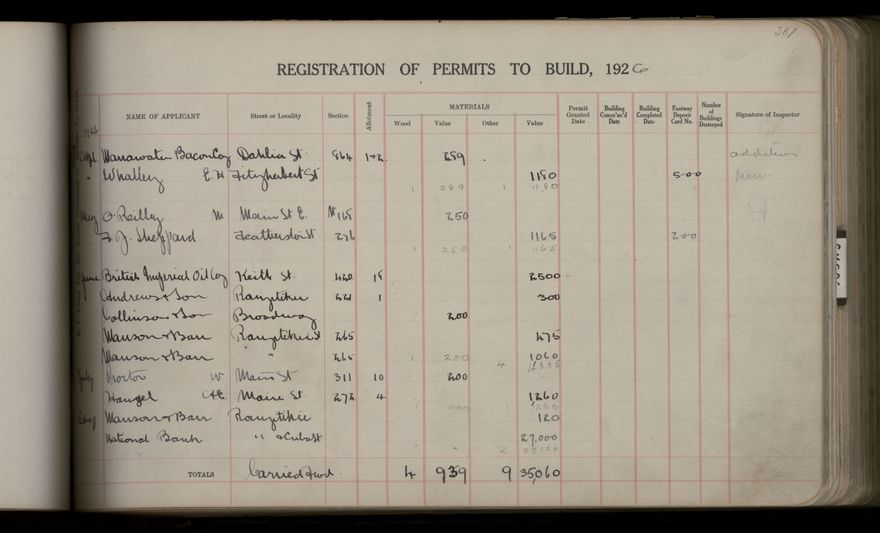 387
REGISTRATION OF PERMITS TO BUILD, 1926
NAME OF APPLICANT Street or Locality Section Allotment MATERIALS Permit Granted Date Building Comm'n'd Date Building Completed Date Footway Deposit Card No. Number of Buildings Destroyed Signature of Inspector
Wood Value Other Value
1926
Manawatu Bacon Coy Dahlia St 864 1+2 289 addition
" Whalley E.H Fitzherbert St 1180 5-0-0 New
1 289 1 1180
May O'Reilly M Main St E. 250
F. J. Sheppard Featherston St. 276 1165 2-0-0
1 250 1 1165
June British Imperial Oil Coy Keith St. 420 18 2500
Andrews & Son Rangitikei 221 1 300
Collinson & Son Broadway 200
Manson & Barr Rangitikei St 265 275
Manson & Barr " " 265 1060
1 200 4 4335
July Procter W Main St 311 10 200
Hangel Maire St. 272 4 1260
1 200 1 1260
Manson & Barr Rangitikie 120
National Bank " & Cuba St 27,000
2 27120
TOTALS Carried Fwd. 4 939 9 35,060